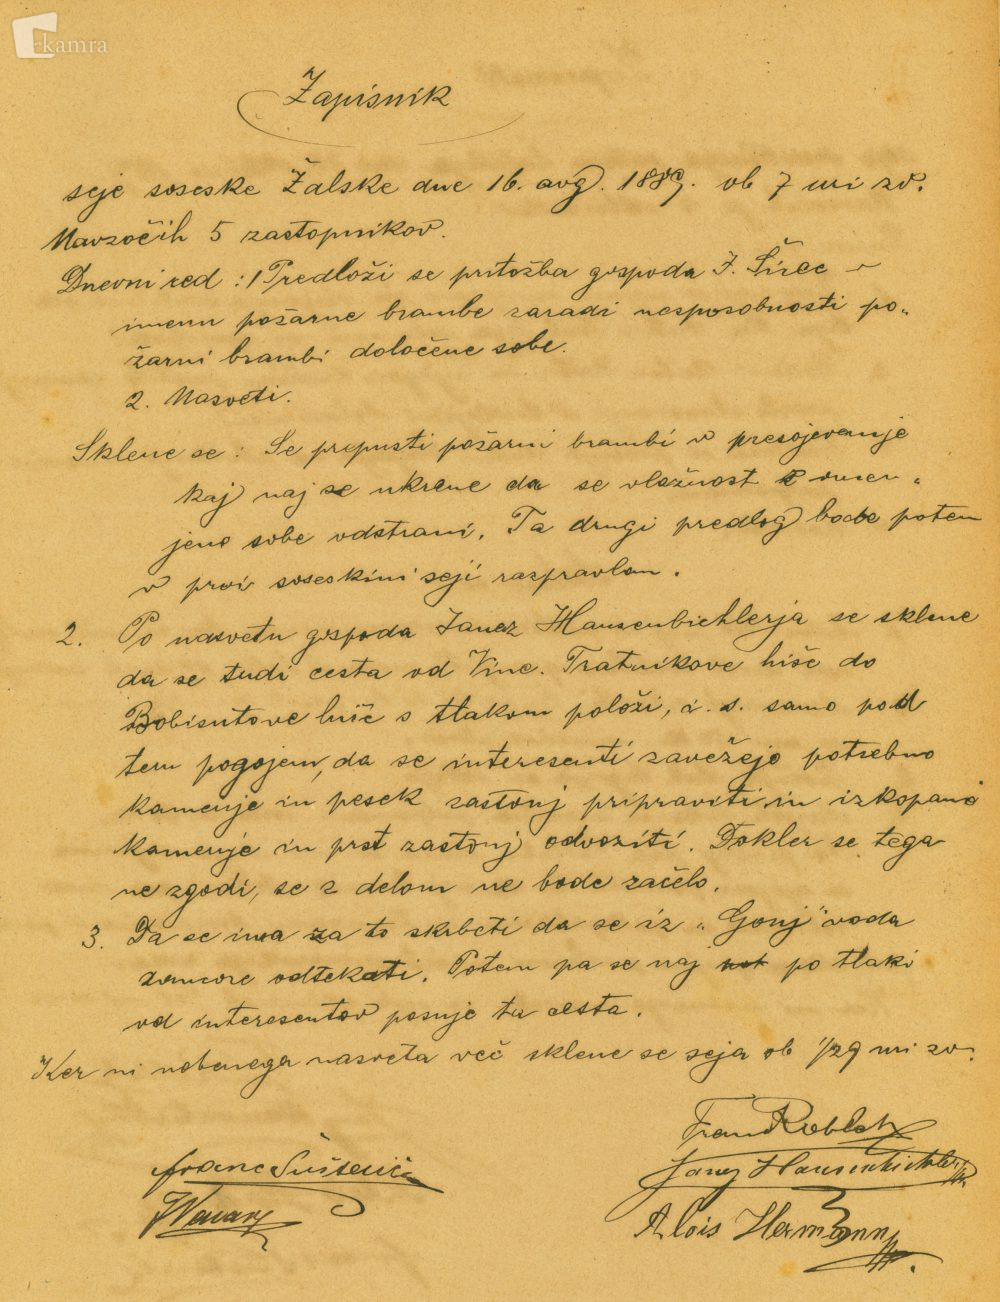 kamra
Zapisnik
seje soseske Žalske dne 16. avg. 1889. ob 7 uri zv.
Navzočih 5 zastopnikov.
Dnevni red : 1 Predloži se pritožba gospoda J. Širec v
imenu požarne brambe zaradi nesposobnosti po„
žarni brambi določene sobe.
2. Nasveti.
Sklene se : Se prepusti požarni brambi v presojevanje
kaj naj se ukrene da se vlažnost omen„
jene sobe odstrani. Ta drugi predlog bode potem
v prvi soseskini seji razpravlan.
2. Po nasvetu gospoda Janez Hausenbichlerja se sklene
da se tudi cesta od Vinc. Tratnikove hiše do
Bobisutove hiše s tlakom položi, i. s. samo pod
tem pogojem, da se interesenti zavežejo potrebno
kamenje in pesek zastonj pripraviti in izkopano
kamenje in prst zastonj odvoziti. Dokler se tega
ne zgodi, se z delom ne bode začelo.
3. Da se ima za to skrbeti da se iz „Gonj" voda
zamore odtekati. Potem pa se naj po tlaki
od interesentov posuje ta cesta.
Ker ni nobenega nasveta več sklene se seja ob 1/29 uri zv.
Fran Roblek
Franc Šušteršič
Janez Hausenbichler
Alois Hermann